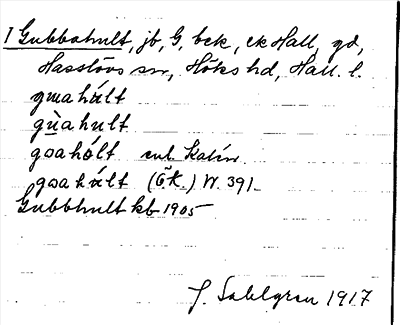 1 Gubbahult, jb, G, bek, ek Hall, gd,
Hasslövs sn, Höks hd, Hall. l.
gɯahált
gùahult
goahólt enl. Kalén
goahált (ÖK.) W. 391.
Gubbhult kb 1905
J. Sahlgren 1917